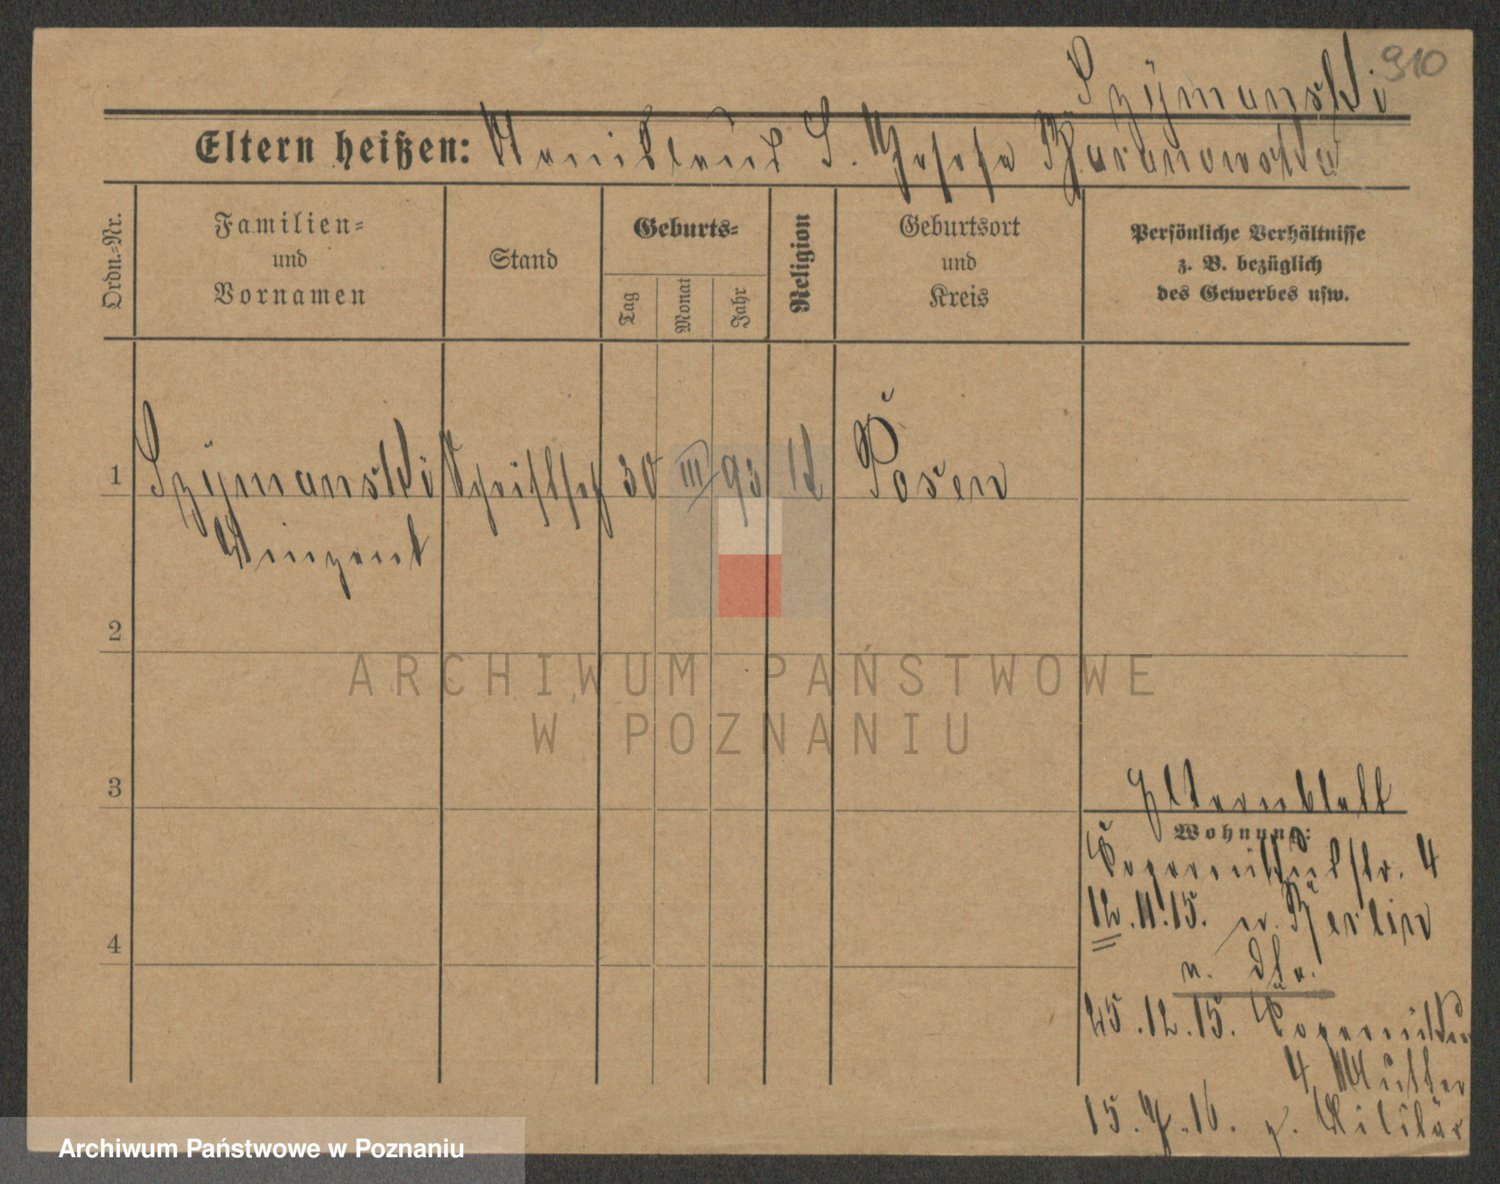 910
Szymanski
Eltern heißen: Stanislaus S. Josefa Baranowska
Ordn.-Nr.
Familien-
und
Vornamen
Stand
Geburts-
Tag
Monat
Jahr
Religion
Geburtsort
und
Kreis
Persönliche Verhältnisse
z. B. bezüglich
des Gewerbes usw.
1 Szymanski Schriftset 30 III 93 Posen
Vinzent
2
ARCHIWUM PAŃSTWOWE
W POZNANIU
3
Elternblatt
Wohnung:
Kopernikusstr. 4
12.11.15. n. Berlin
25.12.15. Kopernikus
4 Mutter
15.7.16. z. Militär
4
Archiwum Państwowe w Poznaniu